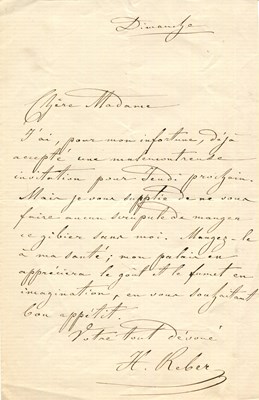 Dimanche
Chère Madame
J'ai, pour mon infortune, déjà
accepté une malencontreuse
invitation pour Jeudi prochain.
Mais je vous supplie de ne vous
faire aucun scrupule de manger
ce gibier sans moi. Mangez-le
à ma santé; mon palais en
appréciera le goût et le fumet en
imagination, en vous souhaitant
bon appétit.
Votre tout dévoué
H. Reber